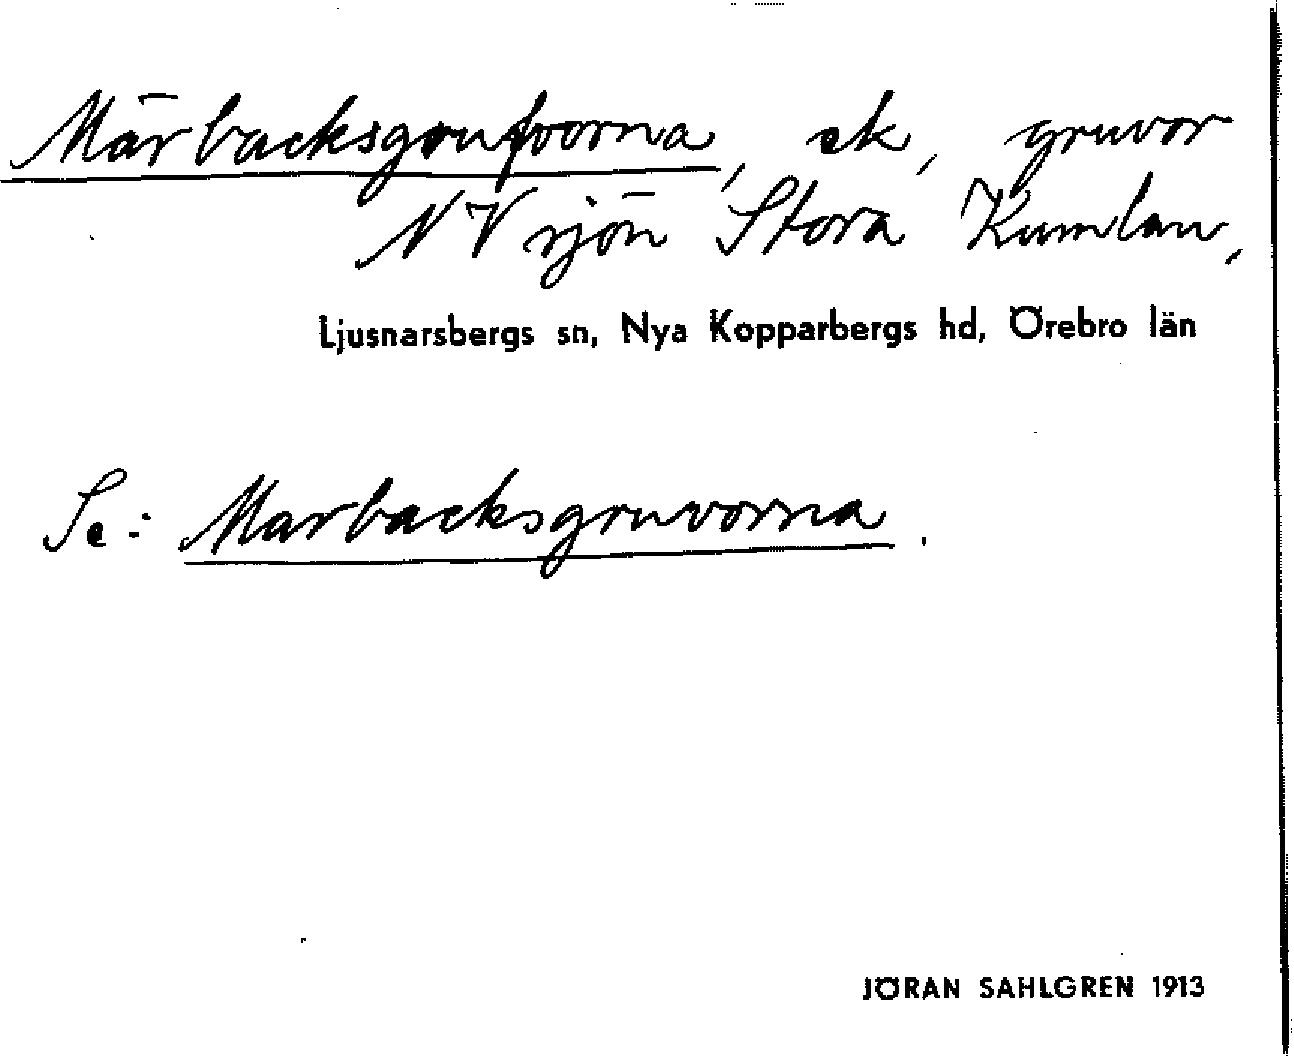 Märbacksgrufvorna, ek, gruvor
NV sjön Stora Kumlan,
Ljusnarsbergs sn, Nya Kopparbergs hd, Örebro län
Se: Marbacksgruvorna.
JÖRAN SAHLGREN 1913